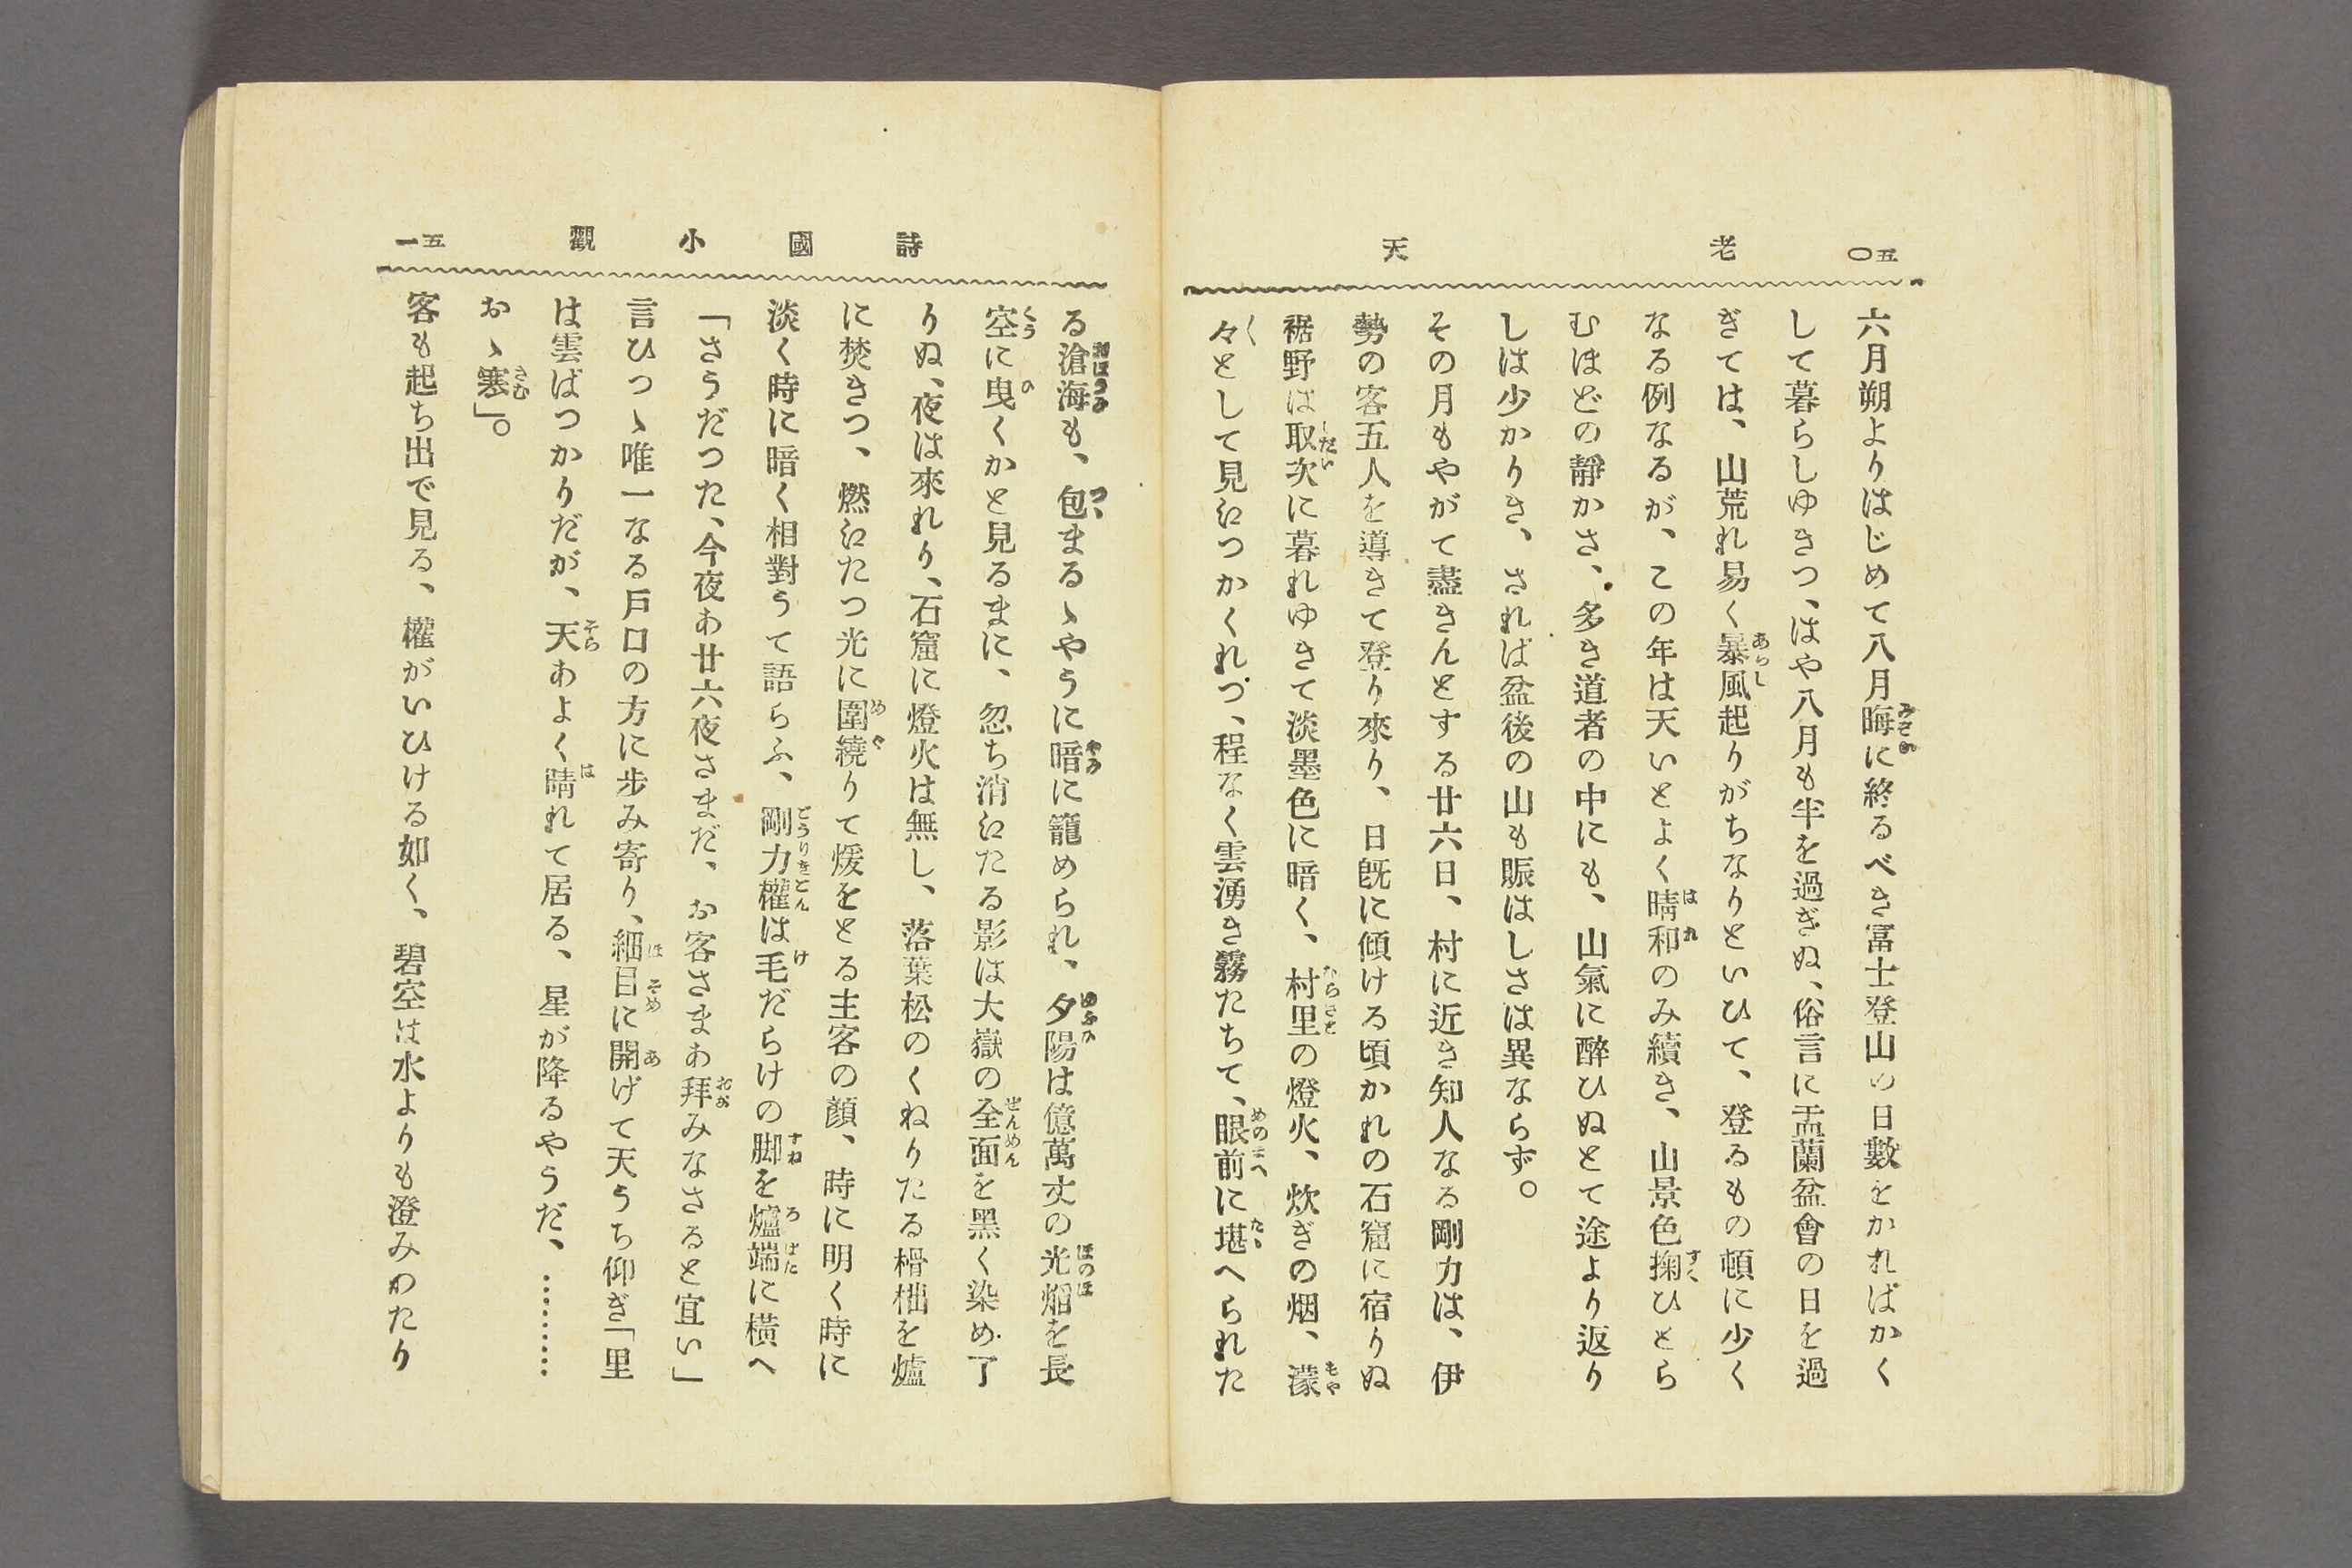 五〇 老天
六月朔よりはじめて八月晦に終るべき富士登山の日數をかればかく
して暮らしゆきつ、はや八月も半を過ぎぬ、俗言に盂蘭盆會の日を過
ぎては、山荒れ易く暴風起りがちなりといひて、登るもの頓に少く
なる例なるが、この年は天いとよく晴和のみ續き、山景色掬ひとら
むほどの靜かさ、多き道者の中にも、山氣に醉ひぬとて途より返り
しは少かりき、されば盆後の山も賑はしさは異ならず。
その月もやがて盡きんとする廿六日、村に近き知人なる剛力は、伊
勢の客五人を導きて登り來り、日既に傾ける頃かれの石窟に宿りぬ
裾野は取次に暮れゆきて淡墨色に暗く、村里の燈火、炊ぎの烟、濛
々として見えつかくれつ、程なく雲湧き霧たちて、眼前に堪へられた
詩國小觀 五一
る滄海も、包まるゝやうに暗に籠められ、夕陽は億萬丈の光焔を長
空に曳くかと見るまに、忽ち消えたる影は大嶽の全面を黑く染め了
りぬ、夜は來れり、石窟に燈火は無し、落葉松のくねりたる榾柮を爐
に焚きつ、燃えたつ光に圍繞りて煖をとる主客の顏、時に明く時に
淡く時に暗く相對うて語らふ、剛力權は毛だらけの脚を爐端に橫へ
「さうだつた、今夜あ廿六夜さまだ、お客さまあ拜みなさると宜い」
言ひつゝ唯一なる戸口の方に步み寄り、細目に開げて天うち仰ぎ「里
は雲ばつかりだが、天あよく晴れて居る、星が降るやうだ、………
おゝ寒」。
客も起ち出で見る、權がいひける如く、碧空は水よりも澄みわたり